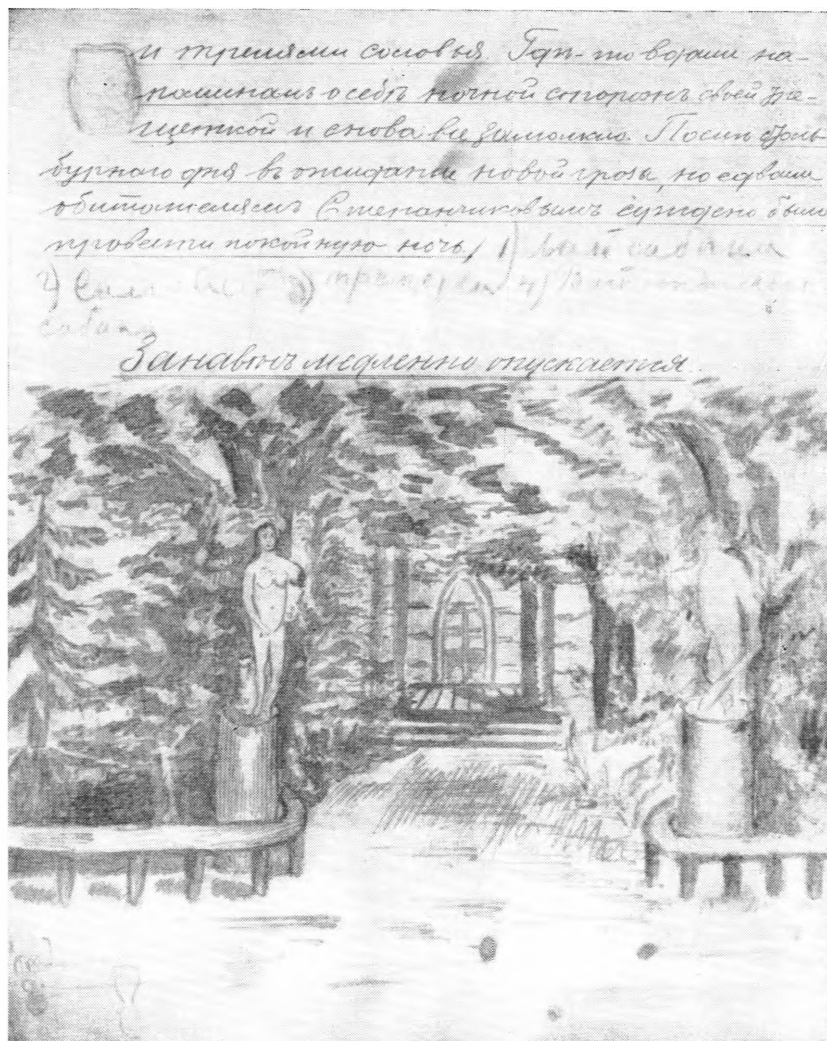 и трелями соловья. Гдѣ-то вдали на-
поминалъ о себѣ ночной сторожъ своей тре-
щеткой и снова все замолкло. Послѣ столь
бурнаго дня въ ожиданіи новой грозы, но едвали
обитателямъ Степанчиковымъ суждено было
провести покойную ночь / 1) Вой собаки
2) 3) 4)
собаки
Занавѣсъ медленно опускается.